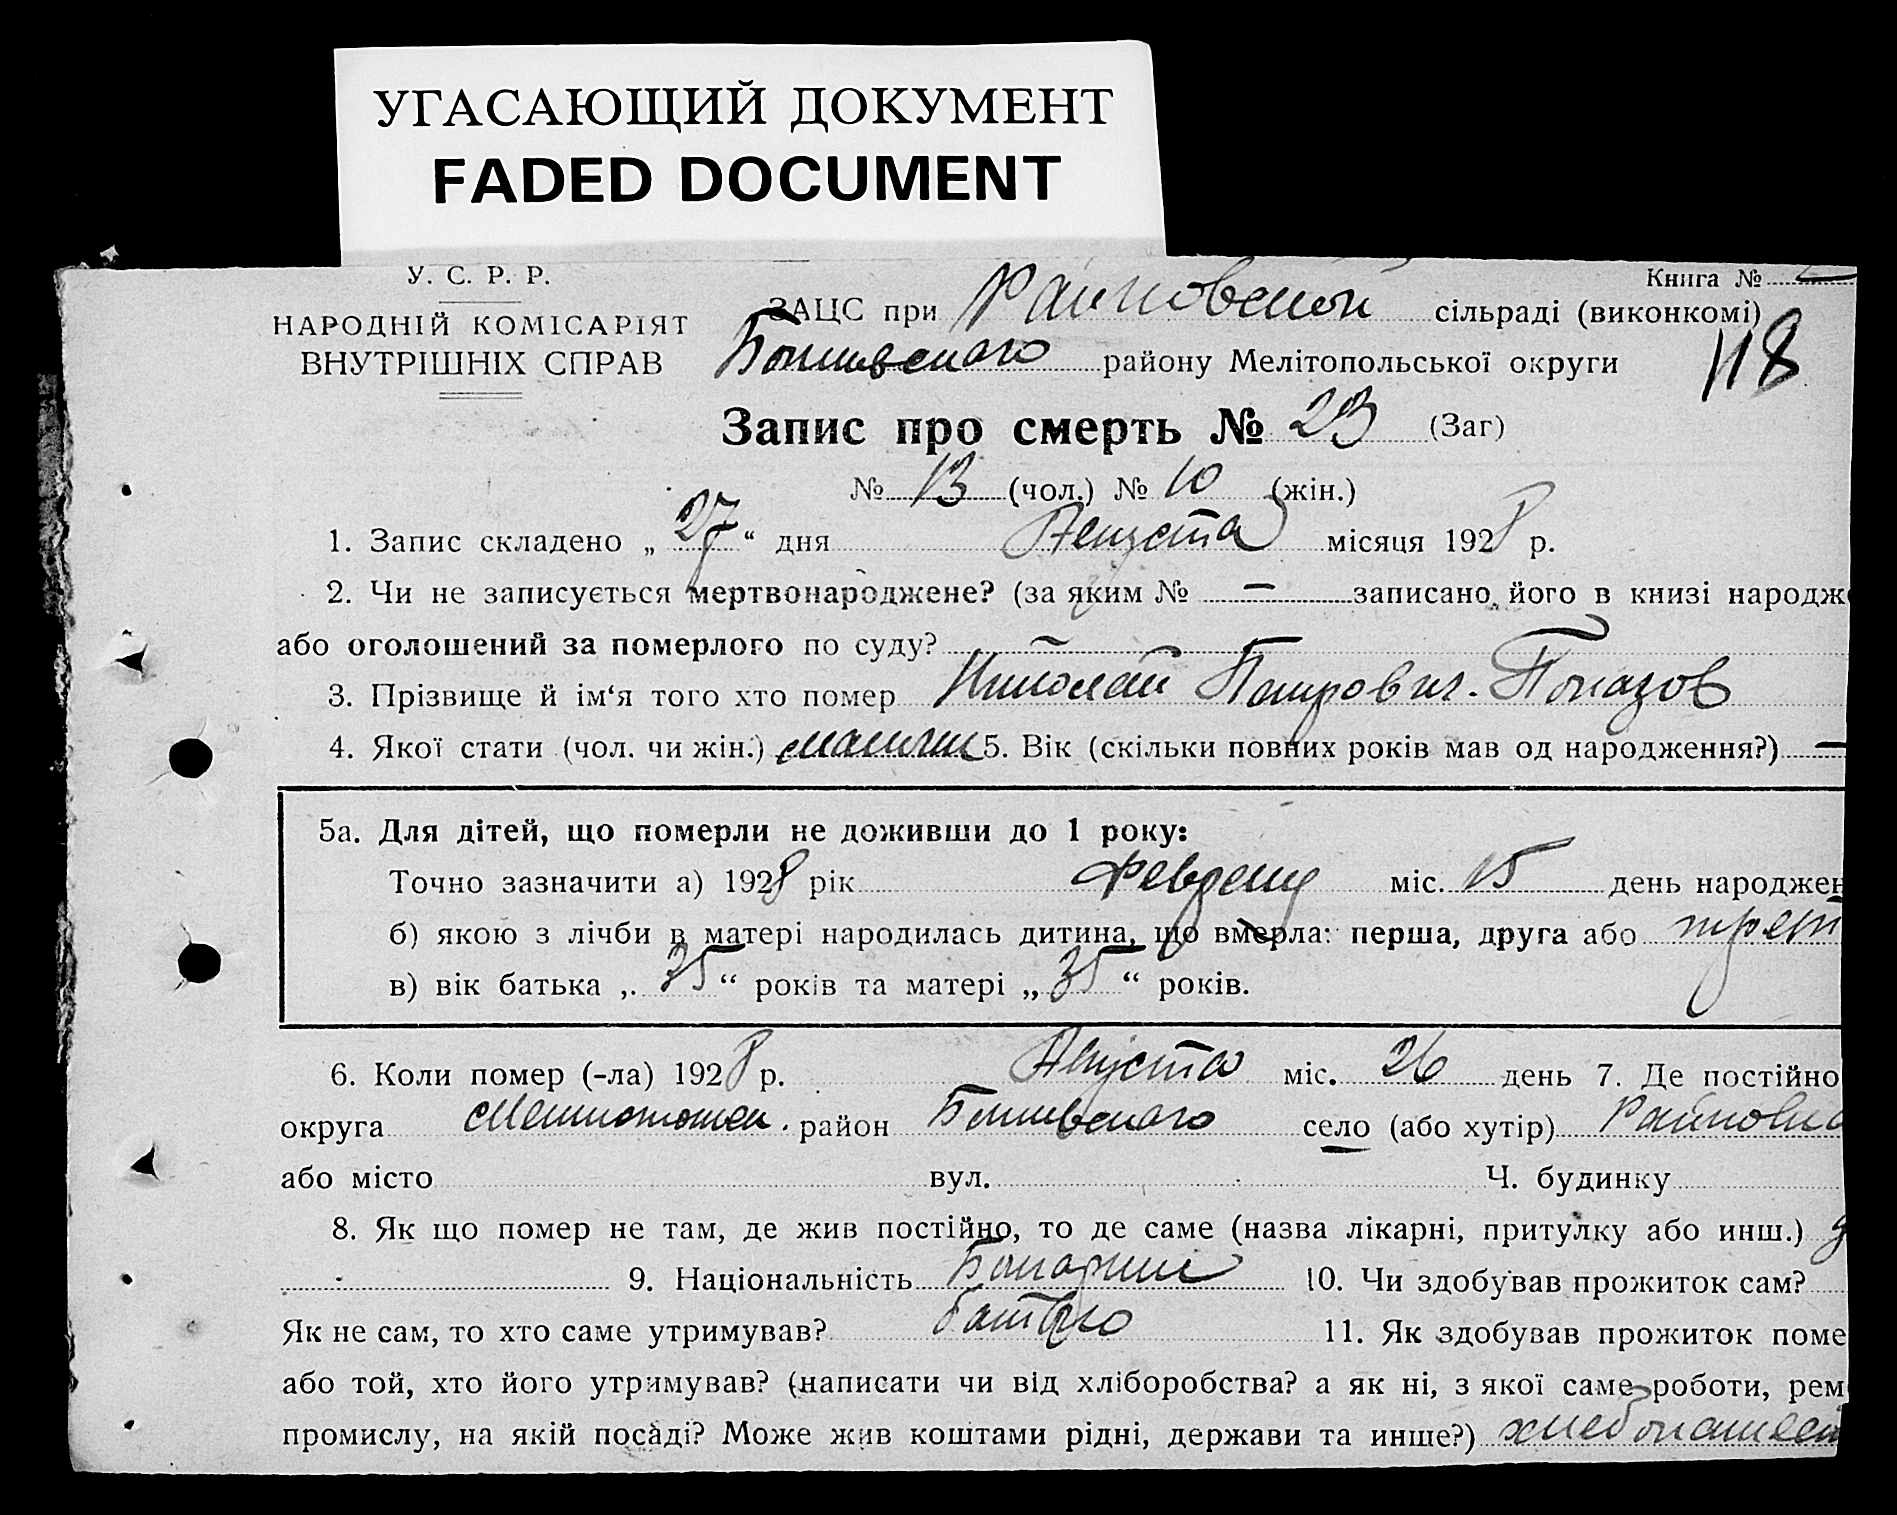 УГАСАЮЩИЙ ДОКУМЕНТ
FADED DOCUMENT
У. С. Р. Р.
НАРОДНІЙ КОМІСАРІЯТ
ВНУТРІШНІХ СПРАВ
Книга №
ЗАЦС при Райновской сільраді (виконкомі)
районy Мелітопольської округи
118
Запис про смерть № 23 (Заг)
№ 13 (чол.) № 10 (жін.)
1. Запис складено „ 27 “ дня Августа місяця 1928 р.
2. Чи не записується мертвонароджене? (за яким № — записано його в книзі народж
або оголошений за померлого по суду?
3. Прізвище й ім‘я того хто помер Николай Петрович
4. Якої стати (чол. чи жін.) 5. Вік (скільки повних років мав од народження?) —
5а. Для дітей, що померли не доживши до 1 року:
Точно зазначити а) 1928 рік февраля міс. 15 день народжен
б) якою з лічби в матері народилась дитина, що вмерла: перша, друга або трет
в) вік батька „ 35 “ років та матері „ 35 “ років.
6. Коли помер (-ла) 1928 р. Августа міс. 26 день 7. Де постійно
округа Мелитопольск. район село (або хутір) Райновка
або місто вул. Ч. будинку
8. Як що помер не там, де жив постійно, то де саме (назва лікарні, притулку або инш.)
9. Національність Болгарин 10. Чи здобував прожиток сам?
Як не сам, то хто саме утримував? 11. Як здобував прожиток поме
або той, хто його утримував? (написати чи від хліборобства? а як ні, з якої саме роботи, рем
промислу, на якій посаді? Може жив коштами рідні, держави та инше?) хлебопашест